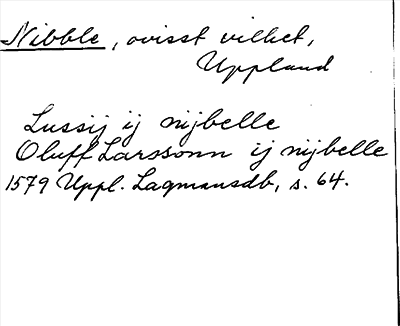 Nibble, ovisst vilket,
Uppland
Lussij ij nijbelle
Oluff Larssonn ij nijbelle
1579 Uppl. Lagmansdb, s. 64.